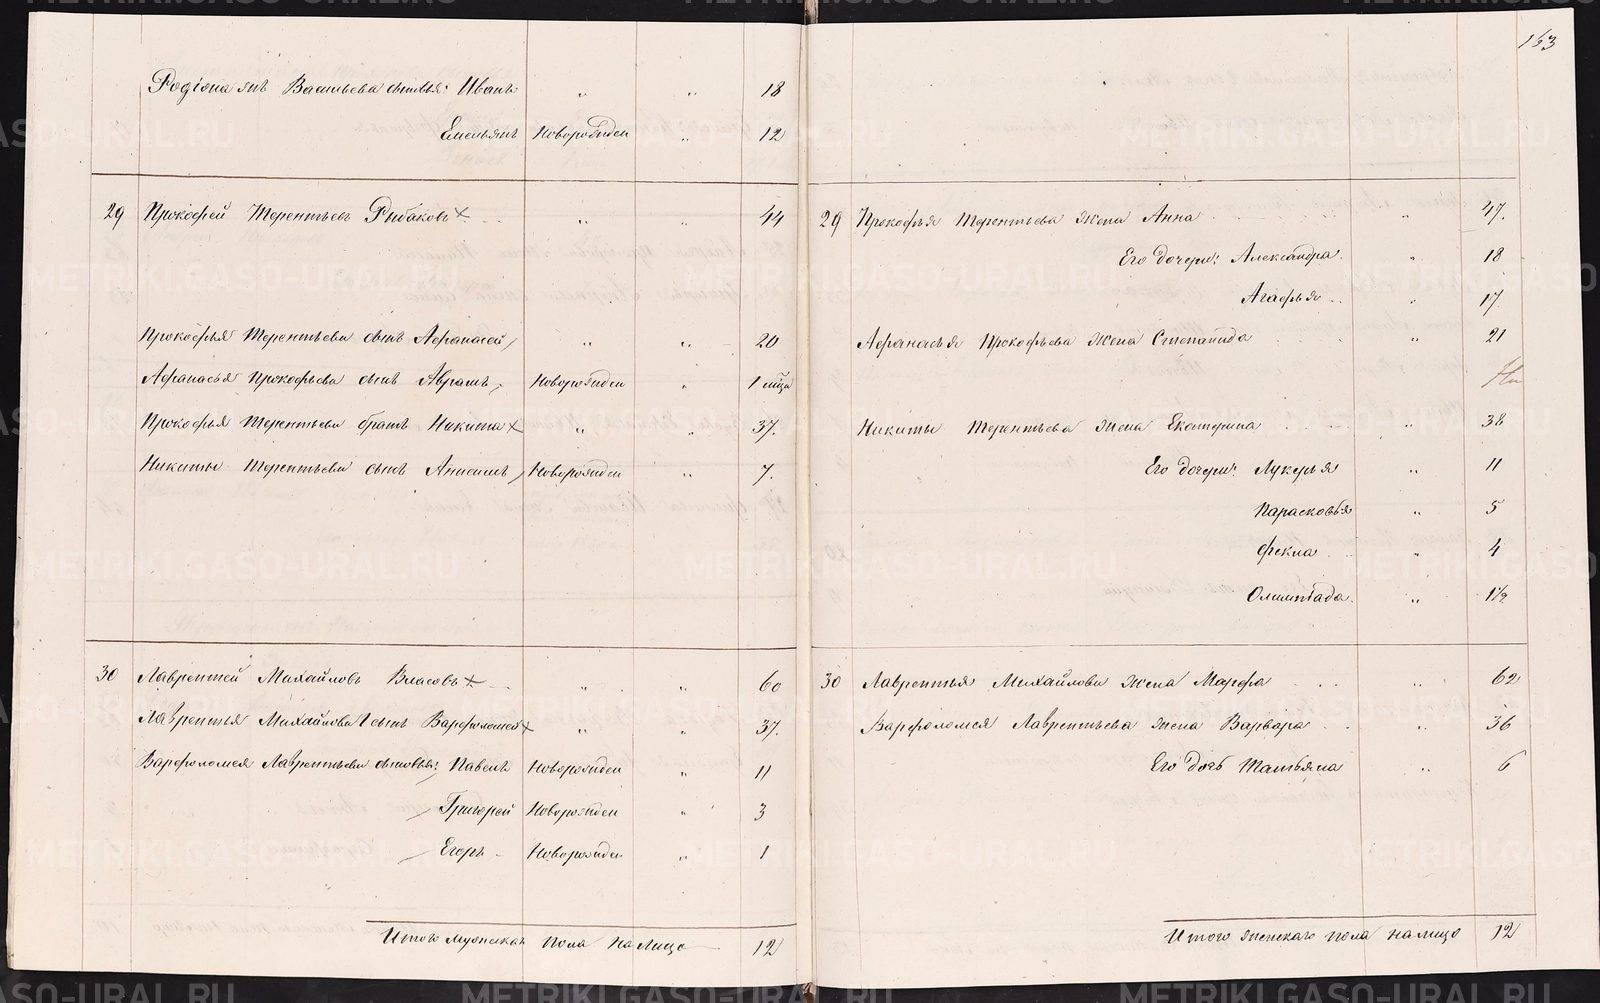 163
Родіона Васильева сыновья: Иванъ " " 18
Емельянъ Новорожден " 12
29 Прокофей Терентьевъ Рыбаковъ " " 44
Прокофья Терентьева сынъ Афанасей " " 20
Афанасья Прокофьева сынъ Аврамъ Новорожден " 1 м̃ца
Прокофья Терентьева братъ Никита " " 37.
Никиты Терентьева сынъ Анисимъ Новорожден " 7.
30 Лаврентей Михайловъ Власовъ " " 60
Лаврентья Михайлова 1 сынъ Варфоломей " " 37.
Варфоломея Лаврентьева сыновья: Павелъ Новорожден " 11
Григорей Новорожден " 3
Егоръ Новорожден " 1
Итого мужеска пола налицо 12
29 Прокофья Терентьева жена Анна " 47.
Его дочери: Александра " 18
Агафья " 17
Афанасья Прокофьева жена Степанида " 21
Никиты Терентьева жена Екатерина " 38
Его дочери: Лукерья " 11
Парасковья " 5
Фекла " 4
Олимпіада " 1½
30 Лаврентья Михайлова жена Марфа " 62
Варфоломея Лаврентьева жена Варвара " 36
Его дочь Татьяна " 6
Итого женскаго пола налицо 12
METRIKI.GASO-URAL.RU